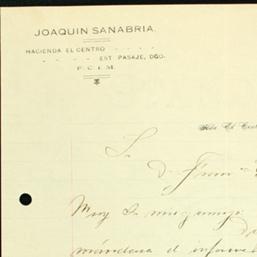 JOAQUIN SANABRIA.
HACIENDA EL CENTRO - - - -
- - - - - EST. PASAJE, DGO.
F. C. I. M.
Hda. El Cent
Sr.
D.
Muy Sr. mio y amigo:
mándeme el informe